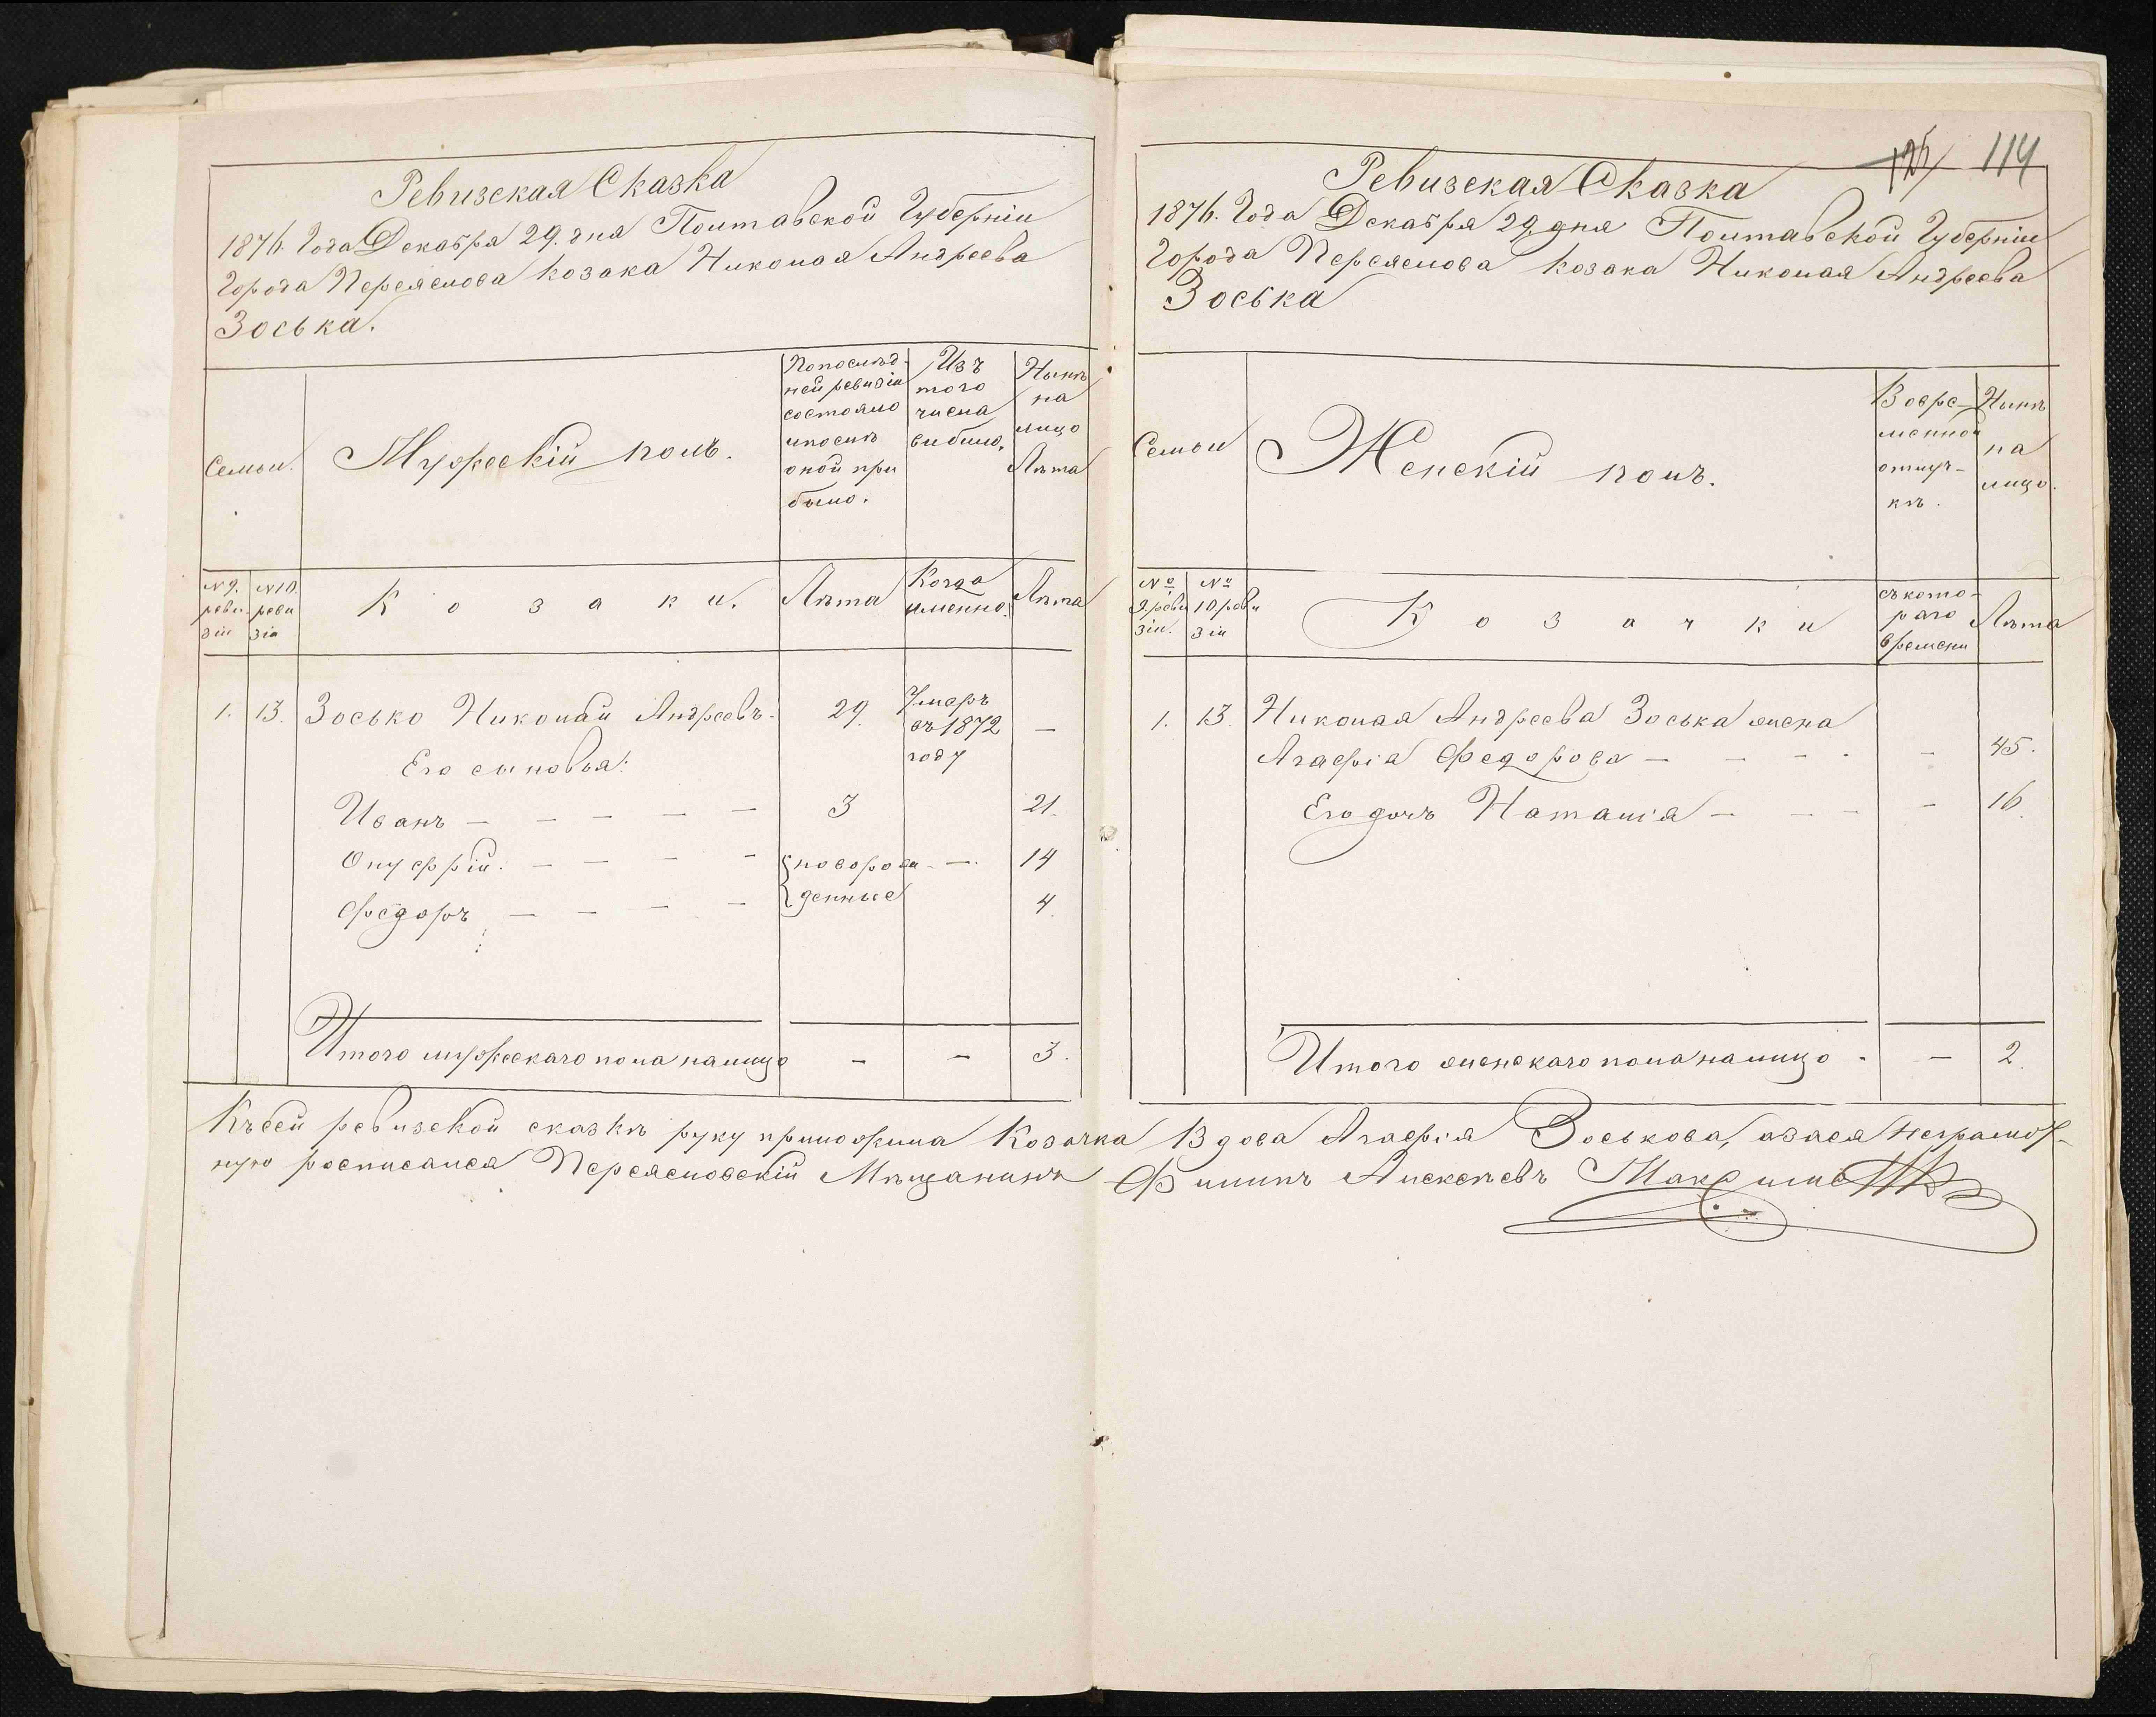 Ревизская Сказка
1876. Года Декабря 29. дня Полтавской Губерніи
Города Переяслова козака Николая Андреева
Зоська.
Семьи.
Мужескій полъ.
По послѣд-
ней ревизіи
состояло
и послѣ
оной при
было.
Изъ
того
числа
выбыло.
Нынѣ
на
лицо
Лѣта
№ 9.
реви
зіи
№ 10.
реви
зіи
Козаки.
Лѣта
Когда
именно.
Лѣта
1. 13. Зосько Николай Андреевъ. 29. Умеръ
въ 1872 —
году
Его сыновья:
Иванъ — — — — — 3 21.
Онуфрій. — — — — новорож — 14
Федоръ — — — — денные 4.
Итого мужескаго пола налицо — — 3.
125 114
Ревизская Сказка
1876. Года Декабря 29. дня Полтавской Губерніи
Города Переяслова козака Николая Андреева
Зоська
Семьи
Женскій полъ.
Во вре-
менной
отлуч-
кѣ.
Нынѣ
на
лицо.
№
9. реви
зіи.
№
10. реви
зіи
Козачки
съ кото-
раго
времени
Лѣта
1. 13. Николая Андреева Зоська жена
Агафія Федорова — — — - — 45.
Его дочь Наталія — — — — 16.
Итого женскаго пола налицо - — 2.
Къ сей ревизской сказкѣ руку приложила Козачка Вдова Агафія Зоськова, а за ея неграмот-
ную росписался Переясловскій Мѣщанинъ Филипъ Алексѣевъ